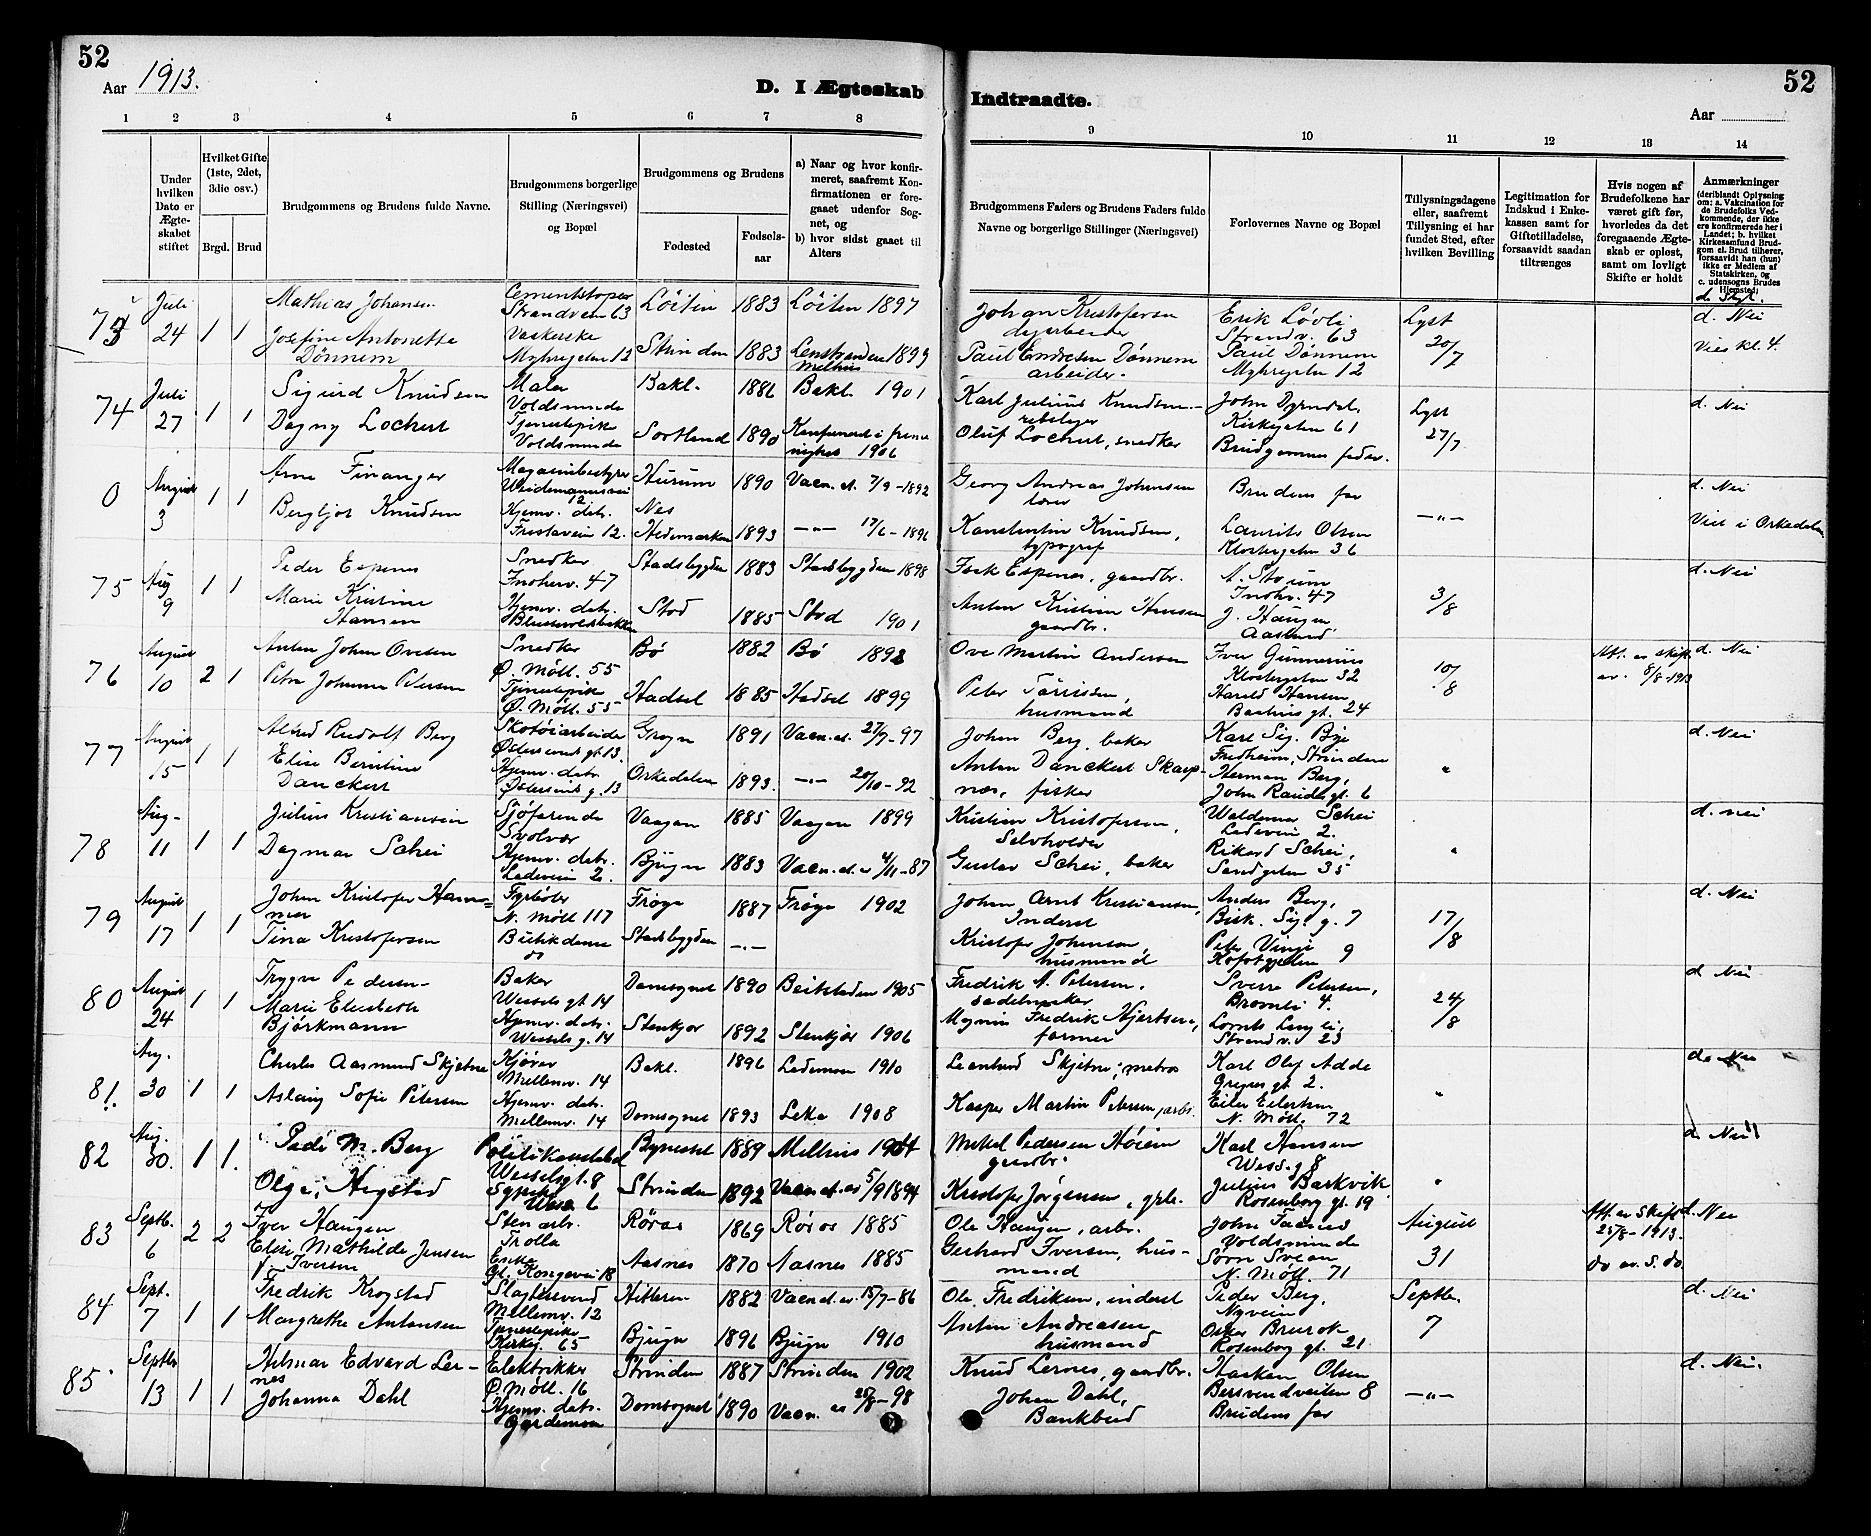 52
Aar 1913.
D. I Ægteskab Indtraadte.
52
Aar
1 2 3 4 5 6 7 8 9 10 11 12 13 14
Under hvilken Dato er Ægteskabet stiftet
Hvilket Gifte (1ste, 2det, 3die osv.)
Brgd. Brud
Brudgommens og Brudens fulde Navne.
Brudgommens borgerlige Stilling (Næringsvei) og Bopæl
Brudgommens og Brudens
Fødested
Fødsels-aar
a) Naar og hvor konfirmeret, saafremt Konfirmationen er foregaaet udenfor Sognet, og
b) hvor sidst gaaet til Alters
Brudgommens Faders og Brudens Faders fulde Navne og borgerlige Stillinger (Næringsvei)
Forlovernes Navne og Bopæl
Tillysningsdagene eller, saafremt Tillysning ei har fundet Sted, efter hvilken Bevilling
Legitimation for Indskud i Enkekassen samt for Giftetilladelse, forsaavidt saadan tiltrænges
Hvis nogen af Brudefolkene har været gift før, hvorledes da det foregaaende Ægteskab er opløst, samt om lovligt Skifte er holdt
Anmærkninger (deriblandt Oplysning om: a. Vakcination for de Brudefolks Vedkommende, der ikke ere konfirmerede her i Landet; b. hvilket Kirkesamfund Brudgom el. Brud tilhører, forsaavidt han (hun) ikke er Medlem af Statskirken, og c. udensogns Brudes Hjemsted)
73 Juli 24 1 1 Mathias Johansen Cementstøper Strandvein 63 Løiten 1883 Løiten 1897 Johan Kristofersen dagarbeider Erik Løvli Strandv. 63 Lyst 20/7 d. Nei
Josefine Antonette Dønnem Vaskerske Myhregaten 12 Strinden 1883 Leinstranden 1899 Melhus Paul Endresen Dønnem arbeider. Paul Dønnem Myhregaten 12 Vies kl. 4.
74 Juli 27 1 1 Sigurd Knudsen Maler Voldsminde Bakl. 1886 Bakl. 1901 Karl Julius Knudsen John Kirkegaten 61 Lyst 27/7 d. Nei
Dagny Lochert Tjenestepike Voldsminde Sortland 1890 1906 Oluf Lochert, snedker Brudgommens fader.
0 August 3 1 1 Arne Finanger Hurum 1890 Vacn. at. 7/9-1892 Georg Andreas Johansen Brudens far -"- d. Nei
Bergljot Knudsen Hjemv. datr. 12. Nes Hedemarken 1893 -"- 17/6-1896 Konstantin Knudsen, typograf Laurits Olsen Klostergaten 36 Viet i Orkedalen
75 Aug 9 1 1 Peder Espenes Snedker Innherv. 47 Stadsbygden 1883 Stadsbygden 1898 Espenes, gaardbr. A. Storum Innhv. 47 3/8 d. Nei
Marie Kristine Hansen Hjemv. datr. Stod 1885 Stod 1901 Anton Kristian Hansen gaardbr. J. Haugen
76 August 10 2 1 Anton Johan Ovesen Snedker Ø. Møll. 55 Bø 1882 Bø 1898 Ove Martin Andersen Iver Gunnerius Klostergaten 32 10/8 Att. av skift. av. 8/8-1913 d. Nei
Petra Johanna Petersen Tjenestepike Ø. Møll. 55 Hadsel 1885 Hadsel 1899 Peter husmand Harald Hansen, Bakhus gt. 24
77 August 15 1 1 Alfred Rudolf Berg Skotøiarbeider gt. 13. 1891 Vacn. at. 27/7-97 Johan Berg, baker Karl Sig. Bye Fredheim, Strinden " d. Nei
Elise Berntine Danckert Hjemv. datr. g. 13 Orkedalen 1893. -"- 20/10-92 Anton Danckert Skarpnæs, fisker Herman Berg, gt. 6
78 Aug. 11 1 1 Julius Kristiansen Sjøfarende Svolvær Vaagan 1885 Vaagan 1899 Kristian Kristofersen, Selvholder Waldemar Schei Ladevein 2. " d. nei
Dagmar Schei Hjemv. datr. Ladevein 2. Bjugn 1883 Vacn. at. 4/11-87 Gustav Schei, baker Rikard Schei, Sandgaten 35
79 August 17 1 1 Johan Kristofer Fyrbøter N. Møll 117 Frøya 1887 Frøya 1902 Johan Arnt Kristiansen, Inderst Anders Berg, Bisk. Sig. g. 7 17/8 d. Nei
Tina Kristofersen Butikdame do Stadsbygden -"- Kristofer Johansen, husmand Peter Vinje 9
80 August 24 1 1 Trygve Pedersen Baker Wessels gt. 14 Domsognet 1890 Beitstaden 1905 Fredrik A. Petersen, sadelmaker Sverre Petersen, Bromli 4. 24/8 d. Nei
Marie Elisabeth Bjørkmann Hjemv. datr. Wessels g. 14 Stenkjær 1892 Stenkjær 1906 Magnus Fredrik former Strandv. 23
81. Aug. 30 1 1 Charles Aasmund Skjetne Kjører Mellemv. 14 Bakl. 1896 Lademoen 1910 Leonhard Skjetne, matros Karl Olaf Adde gt. 2. " do Nei
Aslaug Sofie Petersen Hjemv. datr. Mellemv. 14 Domsognet 1893 Leka 1908 Kasper Martin Petersen, arb. Eiler Eilertsen N. Møll. 72
82 Aug. 30. 1 1. Peder M. Berg Politikonstabel Wesselsgt. 8 Bynesset 1889 Melhus 1904 Mikal Pedersen Høiem gaardbr. Karl Hansen Wess. g 8 " d. Nei
Olga Hegstad Strinden 1892 Vacn. at. av 5/9 1894 Kristofer Jørgensen, Julius Barkvik Rosenborg gt. 19
83 Septb. 6 2 2 Iver Haugen Sten arb. Trolla Røros 1869 Røros 1885 Ole Haugen, arb. John Voldsminde August 31 Att. av Skift. 25/8-1913. d. Nei
Elise Mathilde Jensen f. Iversen Enke Gl. Kongevei 18 Aasnes 1870 Aasnes 1885 Gerhard Iversen, husmand Søren Svean N. Møll. 71 do av. S. do.
84 Sept. 7 1 1 Fredrik Krogstad Slagtersvend Mellemv. 12 Hitteren 1882 Vacn. at. av. 15/7-86 Ole Fredriksen, inderst Peder Berg, Nyveien Septbr. 7 d. Nei
Margrethe Antonsen Tjenestepike Kirkeg. 65 Bjugn 1896 Bjugn 1910 Anton Andreasen husmand Oskar Rosenborg gt. 21.
85 Septbr 13 1 1 Hilmar Edvard Lernes Elektriker Ø. Møll. 16 Strinden 1887 Strinden 1902 Knud Lernes, gaardbr. Haakon Olsen Bersvendveiten 8 -"- d. Nei.
Johanna Dahl Hjemv. datr. Domsognet 1890 Vacn. av 25/8-98 Johan Dahl, Bankbud Brudens far